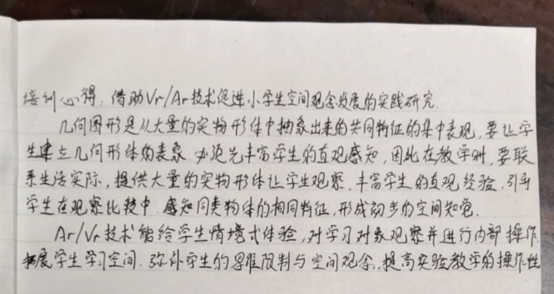 培训心得：借助Vr/Ar技术促进小学生空间观念发展的实践研究
几何图形是从大量的实物形体中抽象出来的共同特征的集中表现，要让学
生建立几何形体的表象，必先丰富学生的直观感知，因此在教学时，要联
系生活实际，提供大量的实物形体让学生观察，丰富学生的直观经验，引导
学生在观察比较中，感知同类物体的相同特征，形成初步的空间知觉。
Ar/Vr技术能给学生情境式体验，对学习对象观察并进行内部操作
拓展学生学习空间，弥补学生的思维限制与空间观念，提高实验教学的操作性